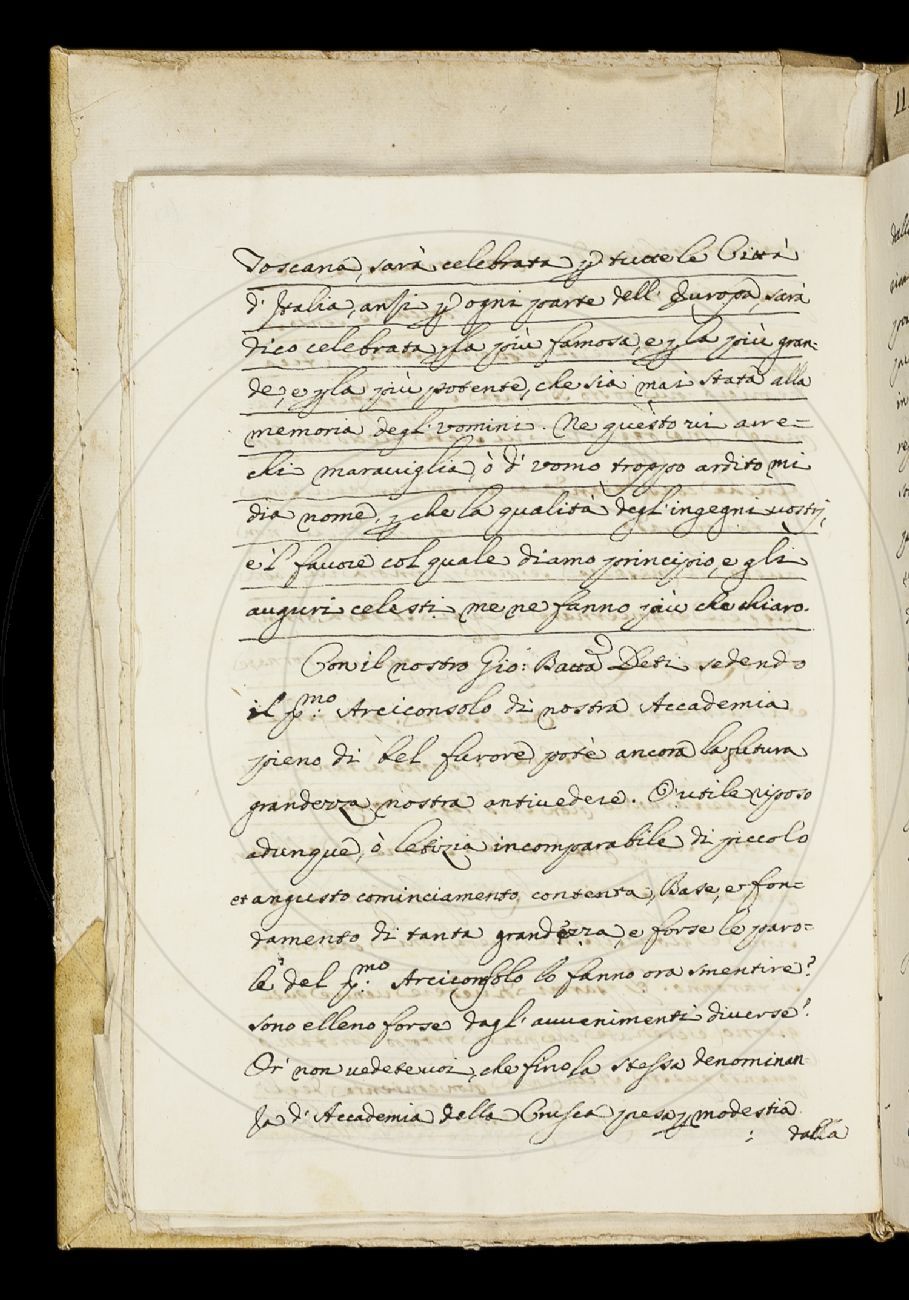 Toscana, sarà celebrata p tutte le Città
d'Italia, anzi p ogni parte dell' Europa, sarà
dico celebrata p la più famosa, e p la più gran-
de, e p la più potente, che sia mai stata alla
memoria degl' vomini. Ne questo vi arre=
chi maraviglia, ò d' vomo troppo ardito mi
dia nome, p che la qualità degl' ingegni vostri,
e 'l favore col quale diamo principio, e gli
auguri celesti me ne fanno più che chiaro.
Con il nostro Gio: Batta Deti sedendo
il p:mo Arciconsolo di nostra Accademia
pieno di bel furore potè ancora la futura
grandezza nostra antivedere. O' utile riposo
adunque, ò letizia incomparabile di piccolo
et angusto cominciamento contenta, Base, e fon=
damento di tanta grandezza, e forse le paro=
le del p:mo Arciconsolo lo fanno ora smentire?
sono elleno forse dagl' avvenimenti diverse?
Or non vedete voi, che fino la stessa denominan-
za d' Accademia della Crusca presa p modestia
dalla